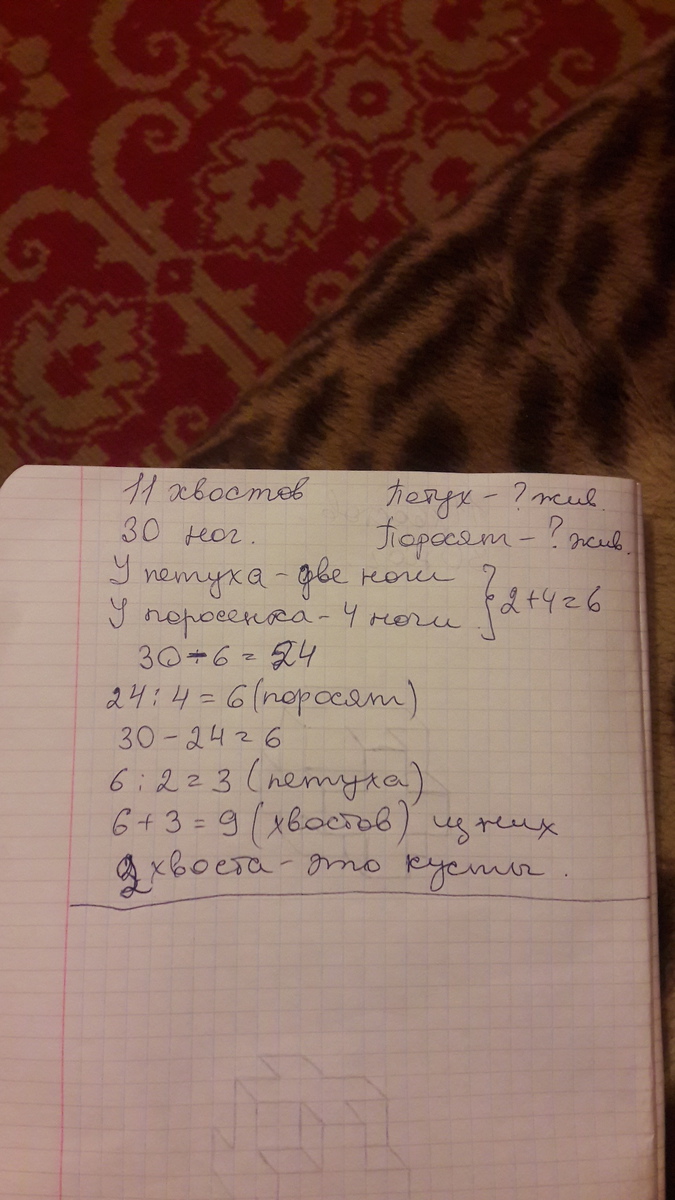 11 хвостов Петух - ? жив.
30 ног. Поросят - ? жив.
У петуха - две ноги } 2+4=6
У поросенка - 4 ноги
30 - 6 = 24
24 : 4 = 6 (поросят)
30 - 24 = 6
6 : 2 = 3 (петуха)
6 + 3 = 9 (хвостов) из них
2 хвоста - это кусты.